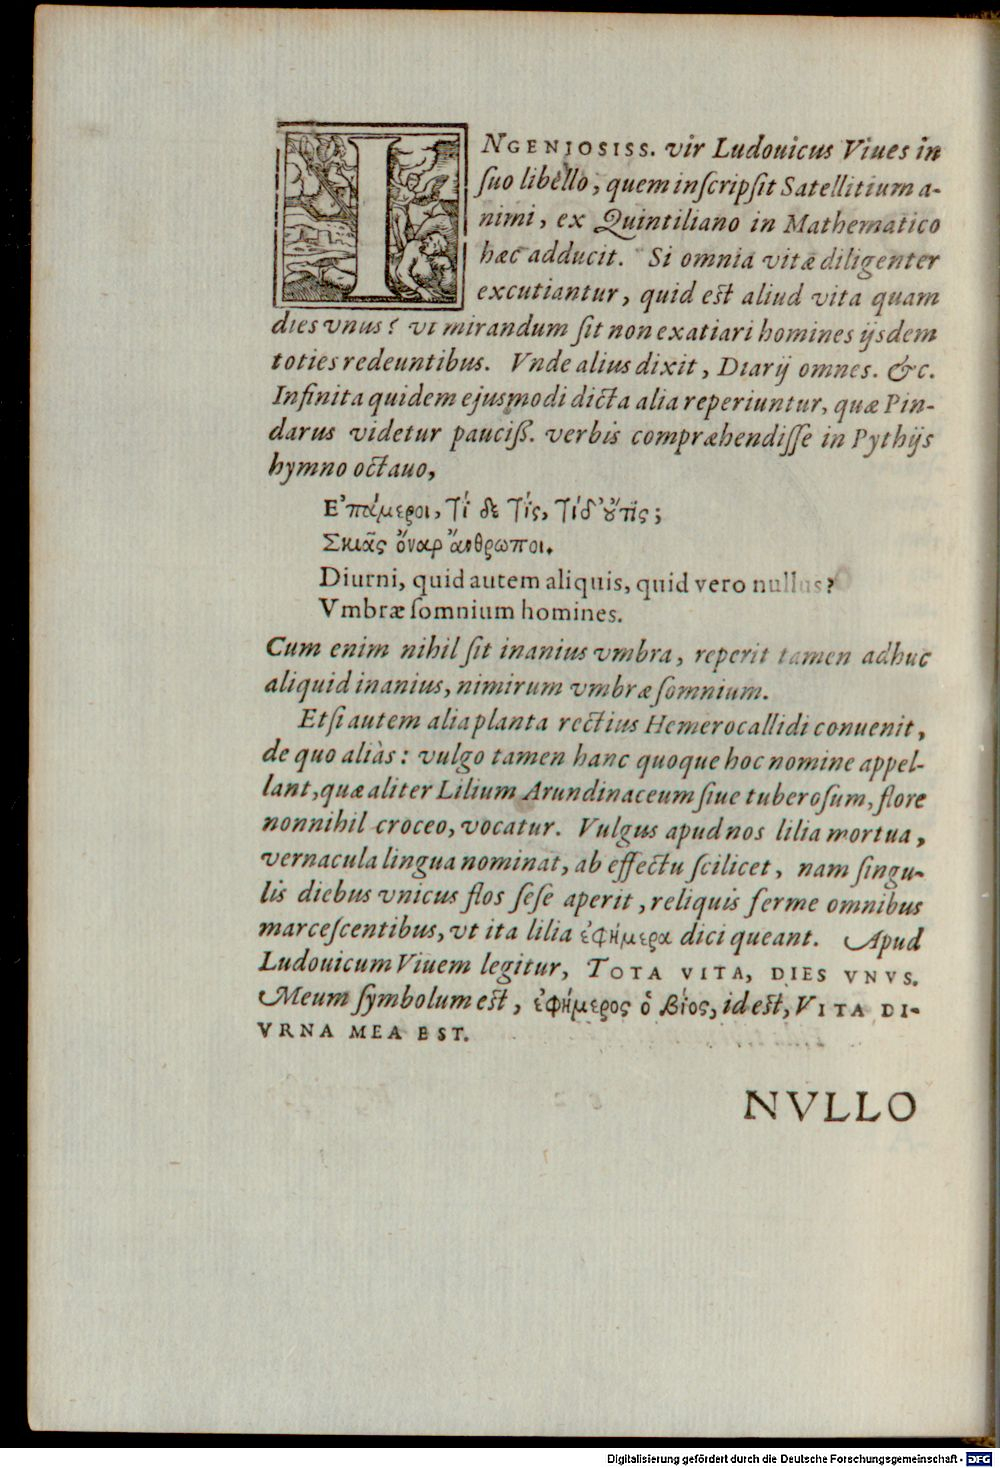 INGENIOSISS. vir Ludouicus Viues in
ſuo libello, quem inſcripſit Satellitium a-
nimi, ex Quintiliano in Mathematico
hæc adducit. Si omnia vitæ diligenter
excutiantur, quid est aliud vita quam
dies vnus? vt mirandum ſit non exatiari homines ijsdem
toties redeuntibus. Vnde alius dixit, Diarij omnes. &c.
Infinita quidem ejusmodi dicta alia reperiuntur, quæ Pin-
darus videtur pauciß. verbis compræhendiſſe in Pythijs
hymno octauo,
Ε᾿πάμεροι, τί δε τίς, τί δ' οὔτις;
Σκιᾶς ὄναρ ἄνθρωποι.
Diurni, quid autem aliquis, quid vero nullus?
Vmbræ ſomnium homines.
Cum enim nihil ſit inanius vmbra, reperit tamen adhuc
aliquid inanius, nimirum vmbræ ſomnium.
Etſi autem alia planta rectius Hemerocallidi conuenit,
de quo aliàs: vulgo tamen hanc quoque hoc nomine appel-
lant, quæ aliter Lilium Arundinaceum ſiue tuberoſum, flore
nonnihil croceo, vocatur. Vulgus apud nos lilia mortua,
vernacula lingua nominat, ab effectu ſcilicet, nam ſingu-
lis diebus vnicus flos ſeſe aperit, reliquis ferme omnibus
marceſcentibus, vt ita lilia ἐφήμερα dici queant. Apud
Ludouicum Viuem legitur, TOTA VITA, DIES VNVS.
Meum ſymbolum est, ἐφήμερος ὁ βίος, id est, VITA DI-
VRNA MEA EST.
NVLLO
Digitalisierung gefördert durch die Deutsche Forschungsgemeinschaft - DFG